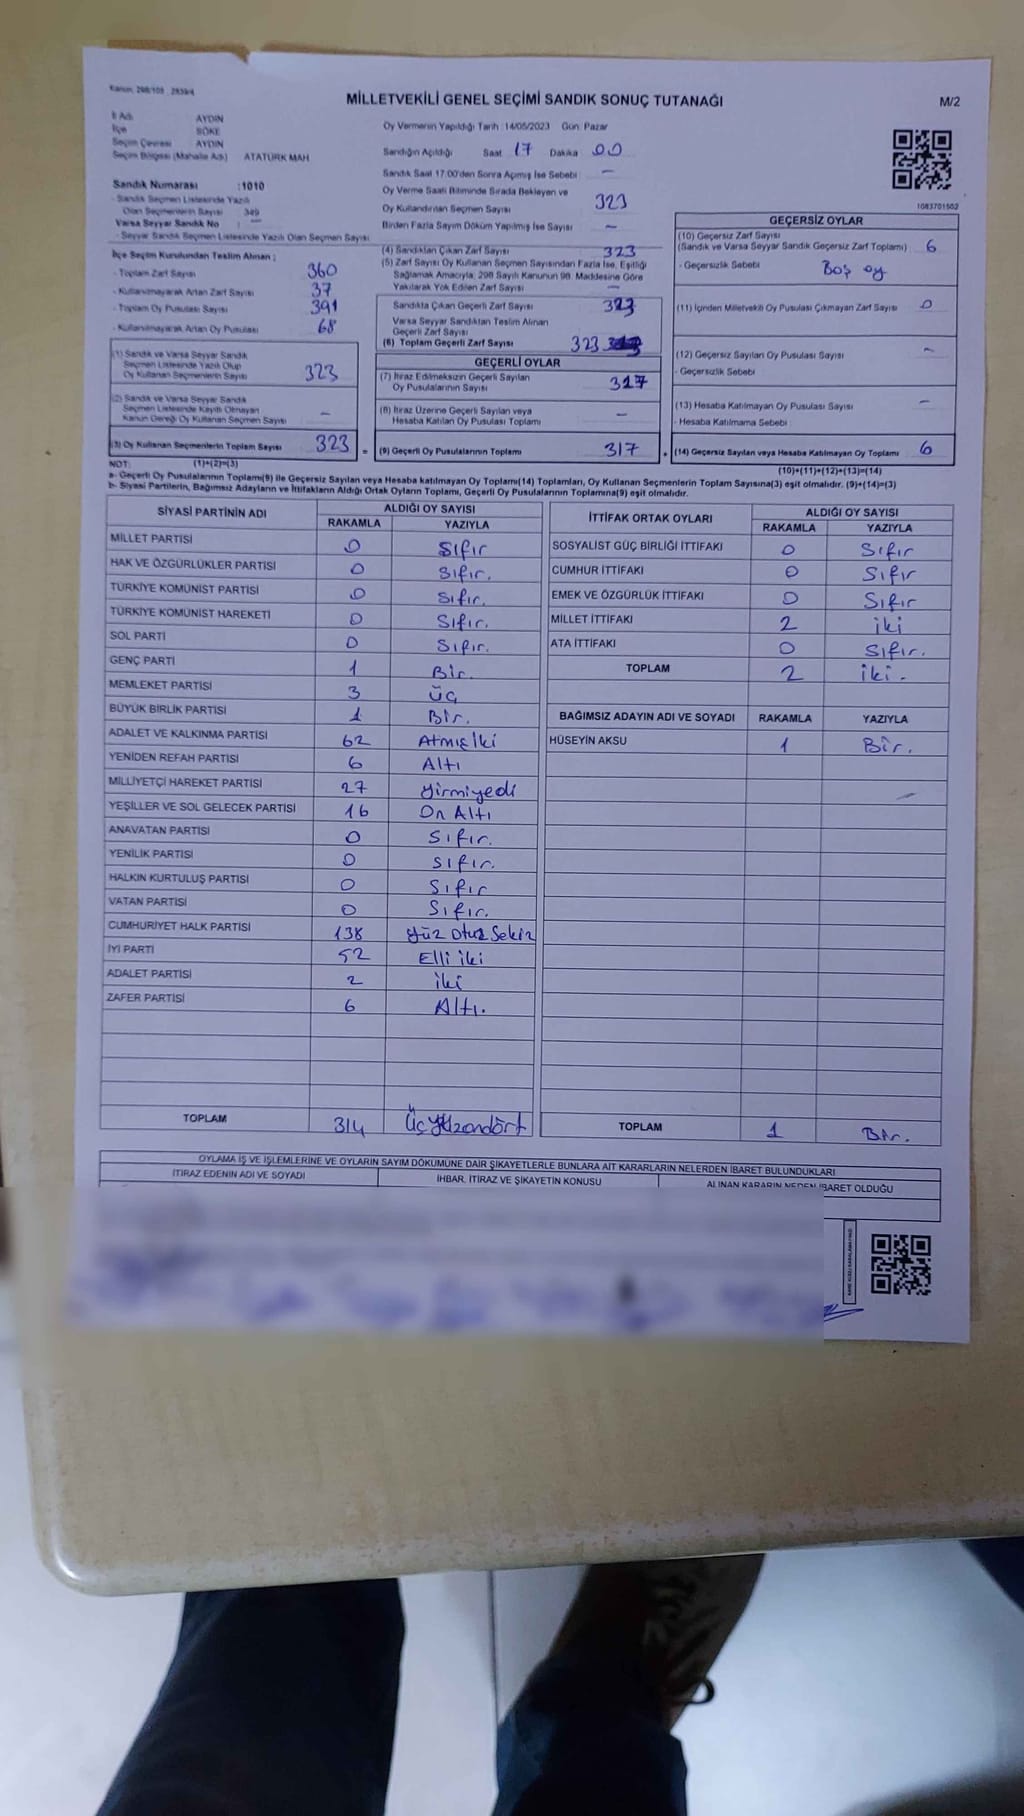 Kanun: 298/105 , 2839/4
MİLLETVEKİLİ GENEL SEÇİMİ SANDIK SONUÇ TUTANAĞI
M/2
İl Adı AYDIN
İlçe SÖKE
Seçim Çevresi AYDIN
Seçim Bölgesi (Mahalle Adı) ATATÜRK MAH
Sandık Numarası :1010
- Sandık Seçmen Listesinde Yazılı
Olan Seçmenlerin Sayısı : 349
Varsa Seyyar Sandık No : —
- Seyyar Sandık Seçmen Listesinde Yazılı Olan Seçmen Sayısı
İlçe Seçim Kurulundan Teslim Alınan ;
- Toplam Zarf Sayısı 360
- Kullanılmayarak Artan Zarf Sayısı 37
- Toplam Oy Pusulası Sayısı 391
- Kullanılmayarak Artan Oy Pusulası 68
(1) Sandık ve Varsa Seyyar Sandık
Seçmen Listesinde Yazılı Olup
Oy Kullanan Seçmenlerin Sayısı 323
(2) Sandık ve Varsa Seyyar Sandık
Seçmen Listesinde Kayıtlı Olmayan
Kanun Gereği Oy Kullanan Seçmen Sayısı –
(3) Oy Kullanan Seçmenlerin Toplam Sayısı 323 =
Oy Vermenin Yapıldığı Tarih :14/05/2023 Gün: Pazar
Sandığın Açıldığı Saat 17 Dakika 00
Sandık Saat 17:00'den Sonra Açımış İse Sebebi : —
Oy Verme Saati Bitiminde Sırada Bekleyen ve
Oy Kullandırılan Seçmen Sayısı 323
Birden Fazla Sayım Döküm Yapılmış İse Sayısı –
(4) Sandıktan Çıkan Zarf Sayısı 323
(5) Zarf Sayısı Oy Kullanan Seçmen Sayısından Fazla İse, Eşitliği
Sağlamak Amacıyla; 298 Sayılı Kanunun 98. Maddesine Göre
Yakılarak Yok Edilen Zarf Sayısı —
Sandıkta Çıkan Geçerli Zarf Sayısı 323
Varsa Seyyar Sandıktan Teslim Alınan
Geçerli Zarf Sayısı
(6) Toplam Geçerli Zarf Sayısı 323
GEÇERLİ OYLAR
(7) İtiraz Edilmeksizin Geçerli Sayılan
Oy Pusulalarının Sayısı 317
(8) İtiraz Üzerine Geçerli Sayılan veya
Hesaba Katılan Oy Pusulası Toplamı –
(9) Geçerli Oy Pusulalarının Toplamı 317 +
1083701502
GEÇERSİZ OYLAR
(10) Geçersiz Zarf Sayısı
(Sandık ve Varsa Seyyar Sandık Geçersiz Zarf Toplamı) 6
- Geçersizlik Sebebi Boş oy
(11) İçinden Milletvekili Oy Pusulası Çıkmayan Zarf Sayısı 0
(12) Geçersiz Sayılan Oy Pusulası Sayısı –
- Geçersizlik Sebebi
(13) Hesaba Katılmayan Oy Pusulası Sayısı –
- Hesaba Katılmama Sebebi
(14) Geçersiz Sayılan veya Hesaba Katılmayan Oy Toplamı 6
NOT: (1)+(2)=(3) (10)+(11)+(12)+(13)=(14)
a- Geçerli Oy Pusulalarının Toplamı(9) ile Geçersiz Sayılan veya Hesaba katılmayan Oy Toplamı(14) Toplamları, Oy Kullanan Seçmenlerin Toplam Sayısına(3) eşit olmalıdır. (9)+(14)=(3)
b- Siyasi Partilerin, Bağımsız Adayların ve İttifakların Aldığı Ortak Oyların Toplamı, Geçerli Oy Pusulalarının Toplamına(9) eşit olmalıdır.
SİYASİ PARTİNİN ADI ALDIĞI OY SAYISI
RAKAMLA YAZIYLA
MİLLET PARTİSİ 0 Sıfır
HAK VE ÖZGÜRLÜKLER PARTİSİ 0 Sıfır.
TÜRKİYE KOMÜNİST PARTİSİ 0 Sıfır.
TÜRKİYE KOMÜNİST HAREKETİ 0 Sıfır.
SOL PARTİ 0 Sıfır.
GENÇ PARTİ 1 Bir.
MEMLEKET PARTİSİ 3 üç
BÜYÜK BİRLİK PARTİSİ 1 Bir.
ADALET VE KALKINMA PARTİSİ 62 Atmışiki
YENİDEN REFAH PARTİSİ 6 Altı
MİLLİYETÇİ HAREKET PARTİSİ 27 yirmiyedi
YEŞİLLER VE SOL GELECEK PARTİSİ 16 On Altı
ANAVATAN PARTİSİ 0 Sıfır.
YENİLİK PARTİSİ 0 Sıfır.
HALKIN KURTULUŞ PARTİSİ 0 Sıfır
VATAN PARTİSİ 0 Sıfır.
CUMHURİYET HALK PARTİSİ 138 yüz otuz Sekiz
İYİ PARTİ 52 Elli iki
ADALET PARTİSİ 2 iki
ZAFER PARTİSİ 6 Altı.
TOPLAM 314 Üçyüzondört
İTTİFAK ORTAK OYLARI ALDIĞI OY SAYISI
RAKAMLA YAZIYLA
SOSYALİST GÜÇ BİRLİĞİ İTTİFAKI 0 Sıfır
CUMHUR İTTİFAKI 0 Sıfır
EMEK VE ÖZGÜRLÜK İTTİFAKI 0 Sıfır
MİLLET İTTİFAKI 2 iki
ATA İTTİFAKI 0 Sıfır.
TOPLAM 2 iki.
BAĞIMSIZ ADAYIN ADI VE SOYADI RAKAMLA YAZIYLA
HÜSEYİN AKSU 1 Bir.
TOPLAM 1 Bir.
OYLAMA İŞ VE İŞLEMLERİNE VE OYLARIN SAYIM DÖKÜMÜNE DAİR ŞİKAYETLERLE BUNLARA AİT KARARLARIN NELERDEN İBARET BULUNDUKLARI
İTİRAZ EDENİN ADI VE SOYADI İHBAR, İTİRAZ VE ŞİKAYETİN KONUSU ALINAN KARARIN NEDEN İBARET OLDUĞU